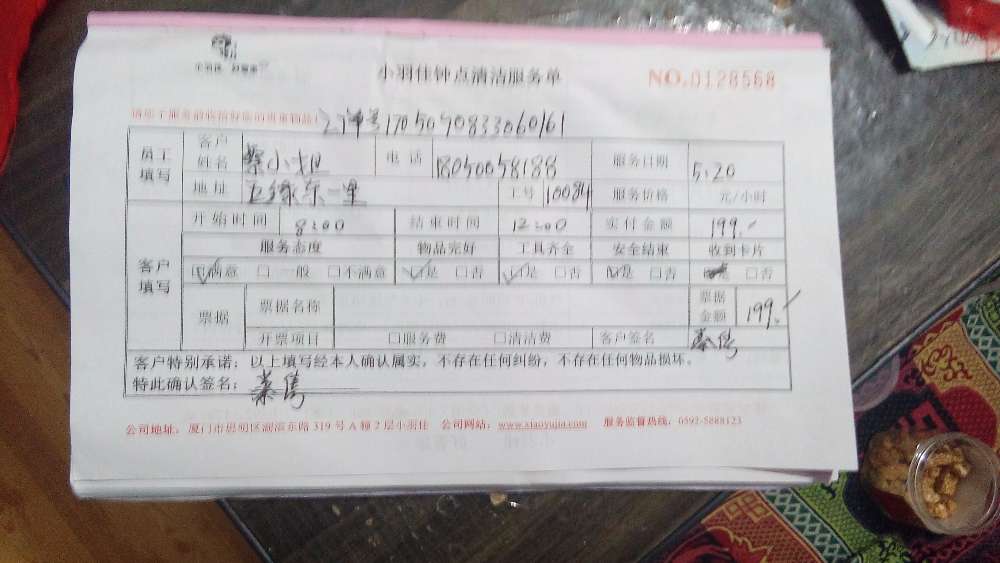 小羽佳 好管家
小羽佳钟点清洁服务单
NO.0128568
订单号170507083306061
员工填写 客户姓名 蔡小姐 电话 18050058188 服务日期 5.20
地址 五缘东一里 工号 10084 服务价格 元/小时
客户填写 开始时间 8:00 结束时间 12:00 实付金额 199.-
服务态度 物品完好 工具齐全 安全结束 收到卡片
☑满意 □一般 □不满意 ☑是 □否 ☑是 □否 ☑是 □否 ☑是 □否
票据 票据名称 票据金额 199.-
开票项目 □服务费 □清洁费 客户签名 蔡
客户特别承诺:以上填写经本人确认属实,不存在任何纠纷,不存在任何物品损坏。
特此确认签名:蔡
公司地址:厦门市思明区湖滨东路319号A幢2层小羽佳 公司网站:www.xiaoyujia.com 服务监督热线:0592-5888123